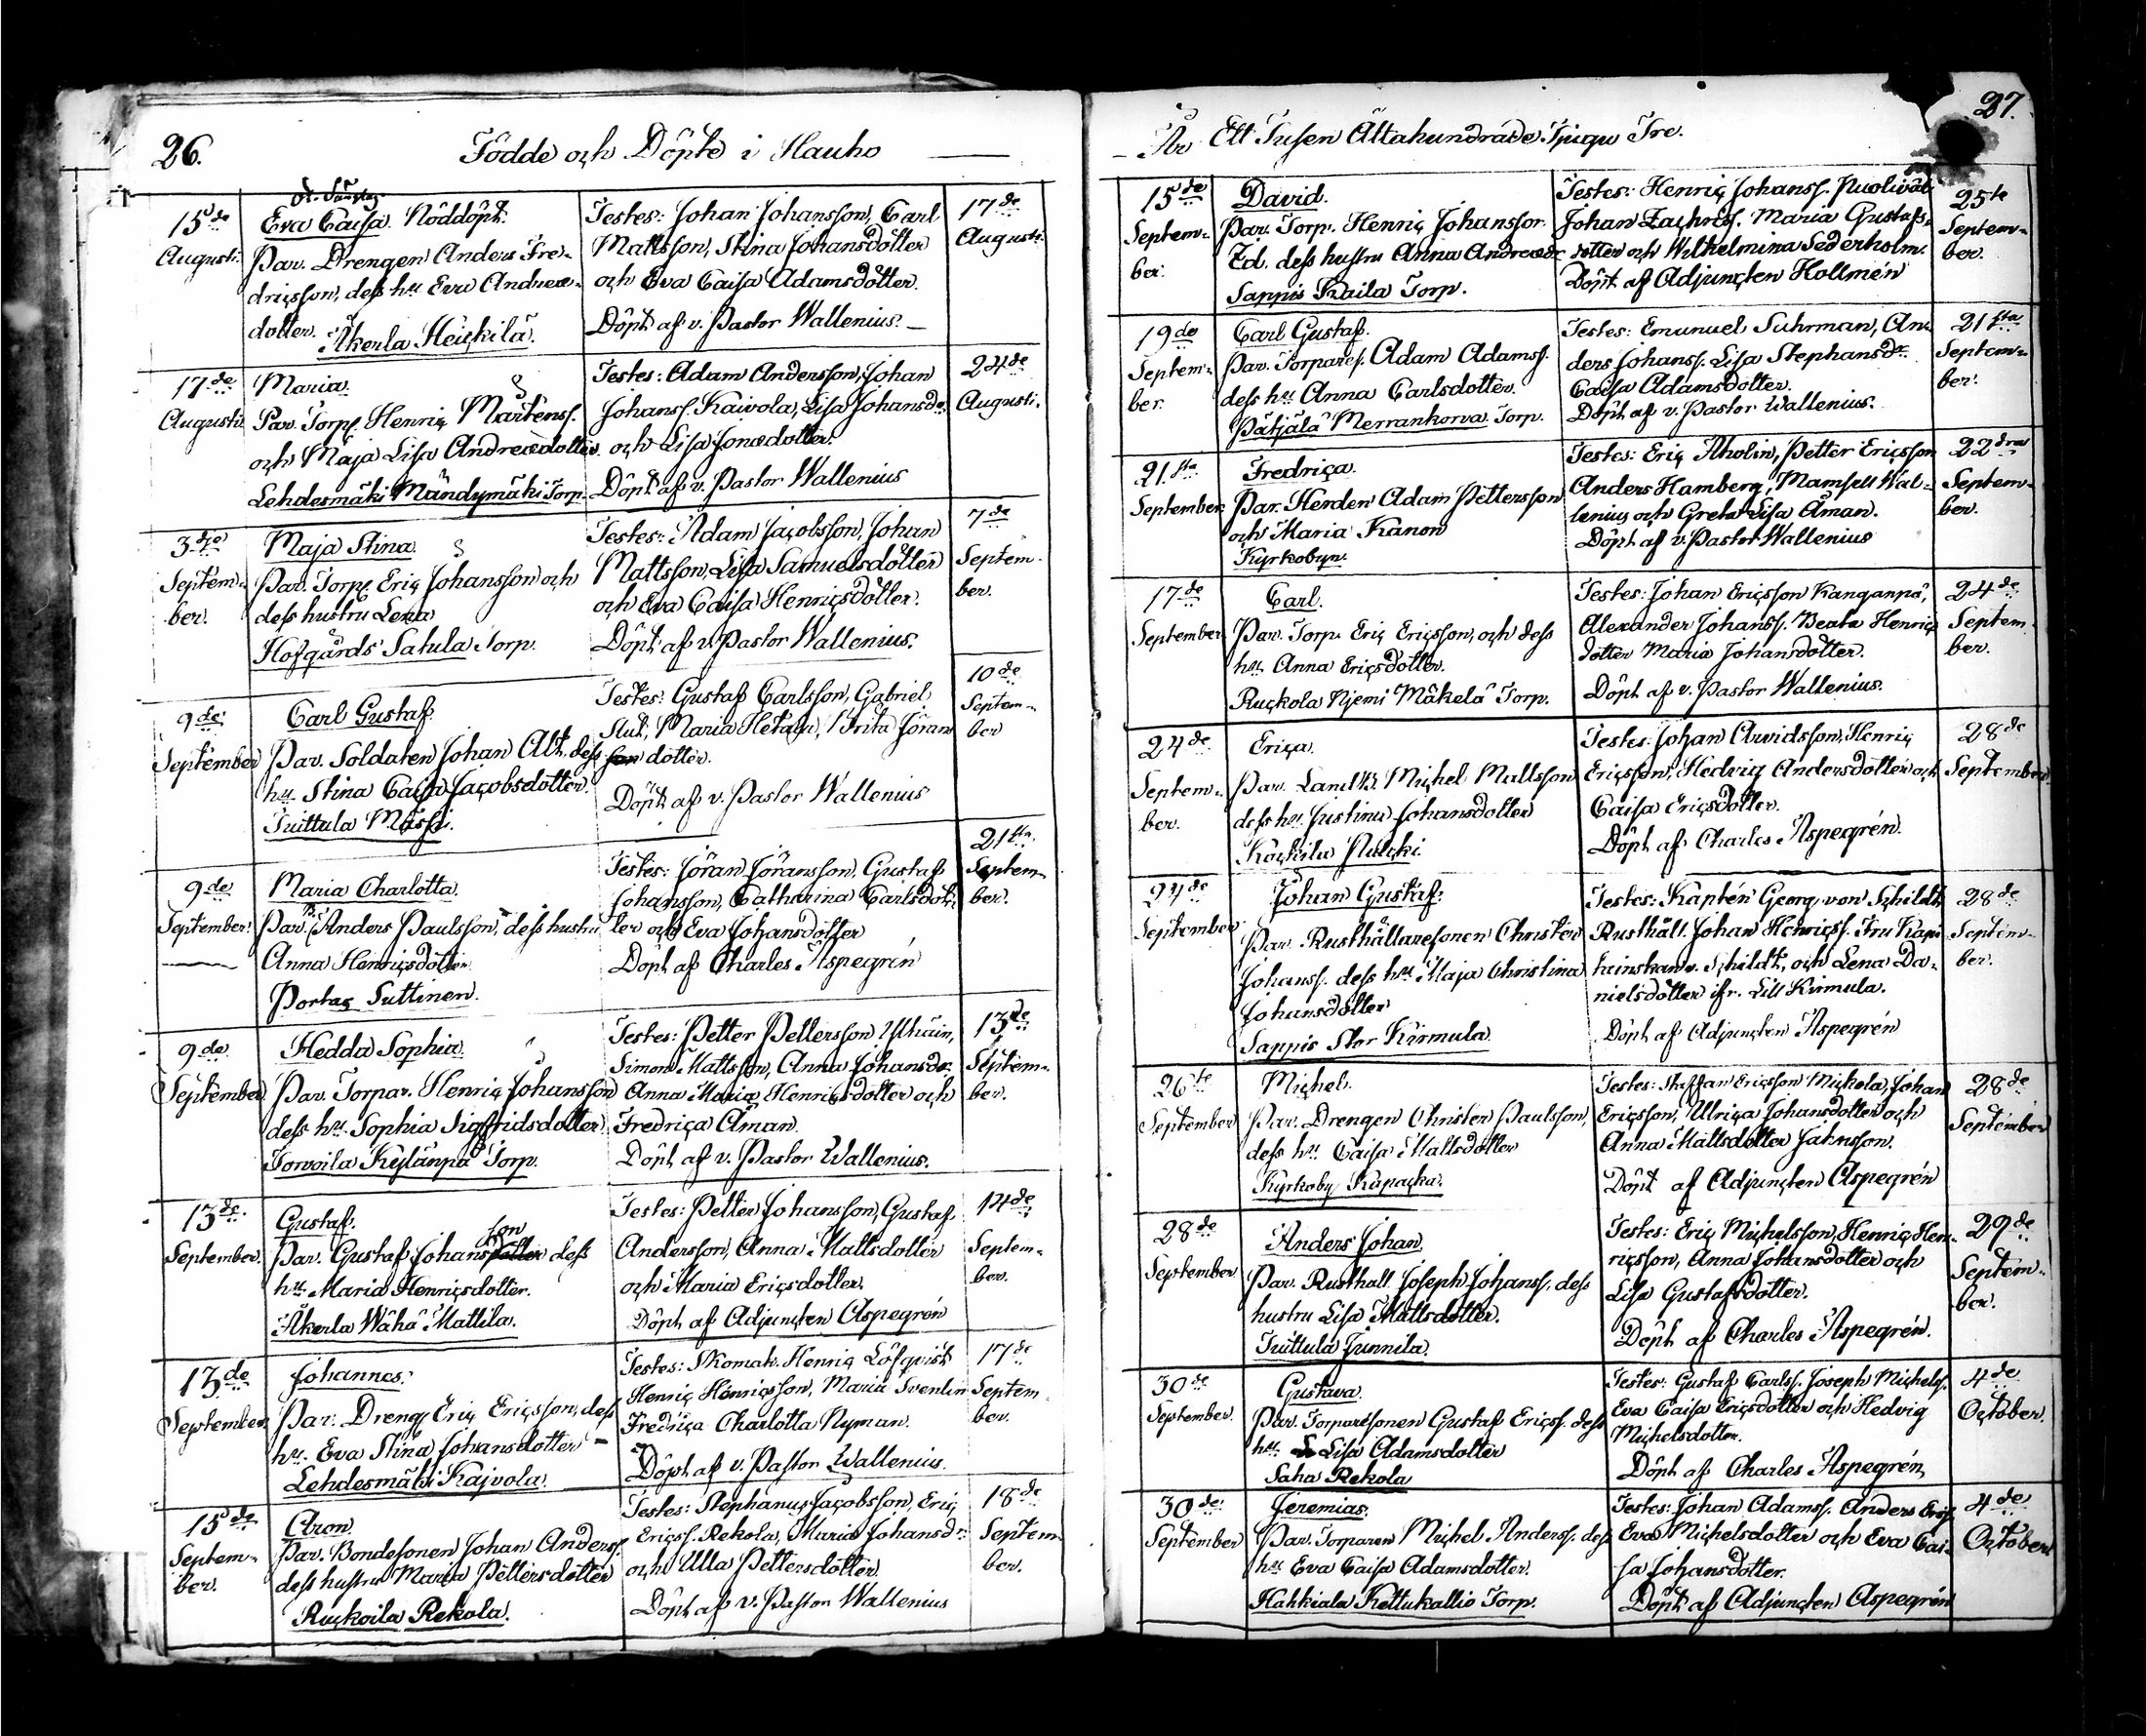 26.
Födde och Döpte i Hauho
15de
Augusti.
Eva Caisa. Nöddöpt.
Par. Drengen Anders Fre-
dricsson, dess hu Eva Andreæ-
dotter. Åkerla Heickilä.
Testes: Johan Johansson, Carl
Mattsson, Stina Johansdotter
och Eva Caisa Adamsdotter.
Döpt af v. Pastor Wallenius.
17de
Augusti.
17de
Augusti
Maria.
Par. Torp. Henric Mårtenss.
och Maja Lisa Andreædotter
Lehdesmäki Mändymäki Torp.
Testes: Adam Andersson, Johan
Johanss. Kaivola, Lisa Johansdr.
och Lisa Jonædotter.
Döpt af v. Pastor Wallenius
24de
Augusti.
3dje
Septem-
ber.
Maja Stina.
Par. Torp. Eric Johansson och
dess hustru Lena
Hofgårds Satula Torp.
Testes: Adam Jacobsson, Johan
Mattsson, Lisa Samuelsdotter
och Eva Caisa Henricsdotter.
Döpt af v. Pastor Wallenius.
7de
Septem-
ber.
9de
September
Carl Gustaf.
Par. Soldaten Johan Alt, dess
hu. Stina Caisa Jacobsdotter.
Tuittula Massi.
Testes: Gustaf Carlsson, Gabriel
Slut, Maria Hetaın, Brita Jöran
son dotter.
Döpt af v. Pastor Wallenius
10de
Septem-
ber
9de
September.
Maria Charlotta.
Par. Anders Paulsson, dess hustru
Anna Henricsdotter
Portas Suttinen.
Testes: Jöran Jöransson, Gustaf
Johansson, Catharina Carlsdot-
ter och Eva Johansdotter
Döpt af Charles Aspegrén
21sta
Septem-
ber.
9de
September
Hedda Sophia.
Par. Torpar. Henric Johansson
dess hu. Sophia Sigfridsdotter
Torvoila Kylänpä Torp.
Testes: Petter Pettersson Ylhäin,
Simon Mattsson, Anna Johansdr.
Anna Maria Henricsdotter och
Fredrica Åman.
Döpt af v. Pastor Wallenius.
13de
Septem-
ber.
13de
September.
Gustaf.
son
Par. Gustaf Johansdotter dess
hu. Maria Henricsdotter.
Åkerla Wähä Mattila.
Testes: Petter Johansson, Gustaf
Andersson, Anna Mattsdotter
och Maria Ericsdotter.
Döpt af Adjuncten Aspegrén
14de
Septem-
ber.
13de
September.
Johannes.
Par. Dreng. Eric Ericsson, dess
hu. Eva Stina Johansdotter
Lehdesmäki Kajvola.
Testes: Skomak. Henric Löfqvist
Henric Henricsson, Maria Svenlin
Fredrica Charlotta Nyman.
Döpt af v. Pastor Wallenius.
17de
Septem
ber.
15de
Septem-
ber.
Aron.
Par. Bondesonen Johan Anderss.
dess hustru Maria Pettersdotter
Ruckoila Rekola.
Testes: Stephanus Jacobsson, Eric
Ericss. Rekola, Maria Johansdr.
och Ulla Pettersdotter.
Döpt af v. Pastor Wallenius
18de
Septem
ber.
27.
Åhr Ett Tusen Åttahundrade Tjugu Tre.
15de
Septem-
ber.
David.
Par. Torp. Henric Johansson.
dess hustru Anna Andreædr
Sappis Kaila Torp.
Testes: Henric Johanss. Puolivät
Johan Zachriss. Maria Gustafs-
dotter och Wilhelmina Sederholm.
Döpt af Adjuncten Hollmén
25te
Septem-
ber.
19de
Septem-
ber.
Carl Gustaf.
Par. Torpares. Adam Adamss.
dess hu Anna Carlsdotter.
Pätjälä Merrankorva Torp.
Testes: Emanuel Suhrman, An-
ders Johanss. Lisa Stephansdr.
Caisa Adamsdotter.
Döpt af v. Pastor Wallenius.
21sta
Septem-
ber.
21sta
September.
Fredrica.
Par. Herden Adam Pettersson
och Maria Kanon
Kyrkobyn.
Testes: Eric Aholin, Petter Ericsson
Anders Hamberg, Mamsell Wal-
lenius och Greta Lisa Åman.
Döpt af v. Pastor Wallenius
22dra
Septem-
ber.
17de
September
Carl.
Par. Torp. Eric Ericsson, och dess
hu. Anna Ericsdotter.
Ruckola Njemi Mäkelä Torp.
Testes: Johan Ericsson Kanganpä,
Alexander Johanss. Beata Henrics
dotter Maria Johansdotter.
Döpt af v. Pastor Wallenius.
24de
Septem
ber.
24de
Septem-
ber.
Erica.
Par. Landtb. Michel Mattsson
dess hu. Justina Johansdotter
Kockila Nulcki.
Testes: Johan Arvidsson, Henric
Ericsson, Hedvig Andersdotter och
Caisa Ericsdotter.
Döpt af Charles Aspegrén.
28de
September
27de
September
Johan Gustaf.
Par. Rusthållaresonen Christer
Johanss. dess hu Maja Christina
Johansdotter
Sappis Stor Kirmula.
Testes: Kaptén Georg von Schildt
Rusthåll. Johan Henricss. Fru Kap-
tainskan v. Schildt, och Lena Da-
nielsdotter ifr. Lill Kirmula.
Döpt af Adjuncten Aspegrén
28de
Septem-
ber.
26te
September
Michel.
Par. Drengen Christer Paulsson,
dess hu Caisa Mattsdotter
Kyrkoby Kapacka.
Testes: Staffan Ericsson Mickola, Johan
Ericsson, Ulrica Johansdotter och
Anna Mattsdotter Jahnsson.
Döpt af Adjuncten Aspegrén
28de
September
28de
September
Anders Johan.
Par. Rusthåll. Joseph Johanss. dess
hustru Lisa Mattsdotter.
Tuittula Junnila.
Testes: Eric Michelsson, Henric Hen-
ricsson, Anna Johansdotter och
Lisa Gustafsdotter.
Döpt af Charles Aspegrén.
29de
Septem-
ber.
30de
September.
Gustava.
Par. Torparesonen Gustaf Ericss. dess
hu. Lisa Adamsdotter
Saha Rekola
Testes: Gustaf Carlss. Joseph Michelss.
Eva Caisa Ericsdotter och Hedvig
Michelsdotter.
Döpt af Charles Aspegrén
4de
October.
30de
September
Jeremias.
Par. Torparen Michel Anderss. dess
hu Eva Caisa Adamsdotter.
Hahkiala Kettukallio Torp.
Testes: Johan Adamss. Anders Ericss.
Eva Michelsdotter och Eva Cai-
sa Johansdotter.
Döpt af Adjuncten Aspegrén
4de
October